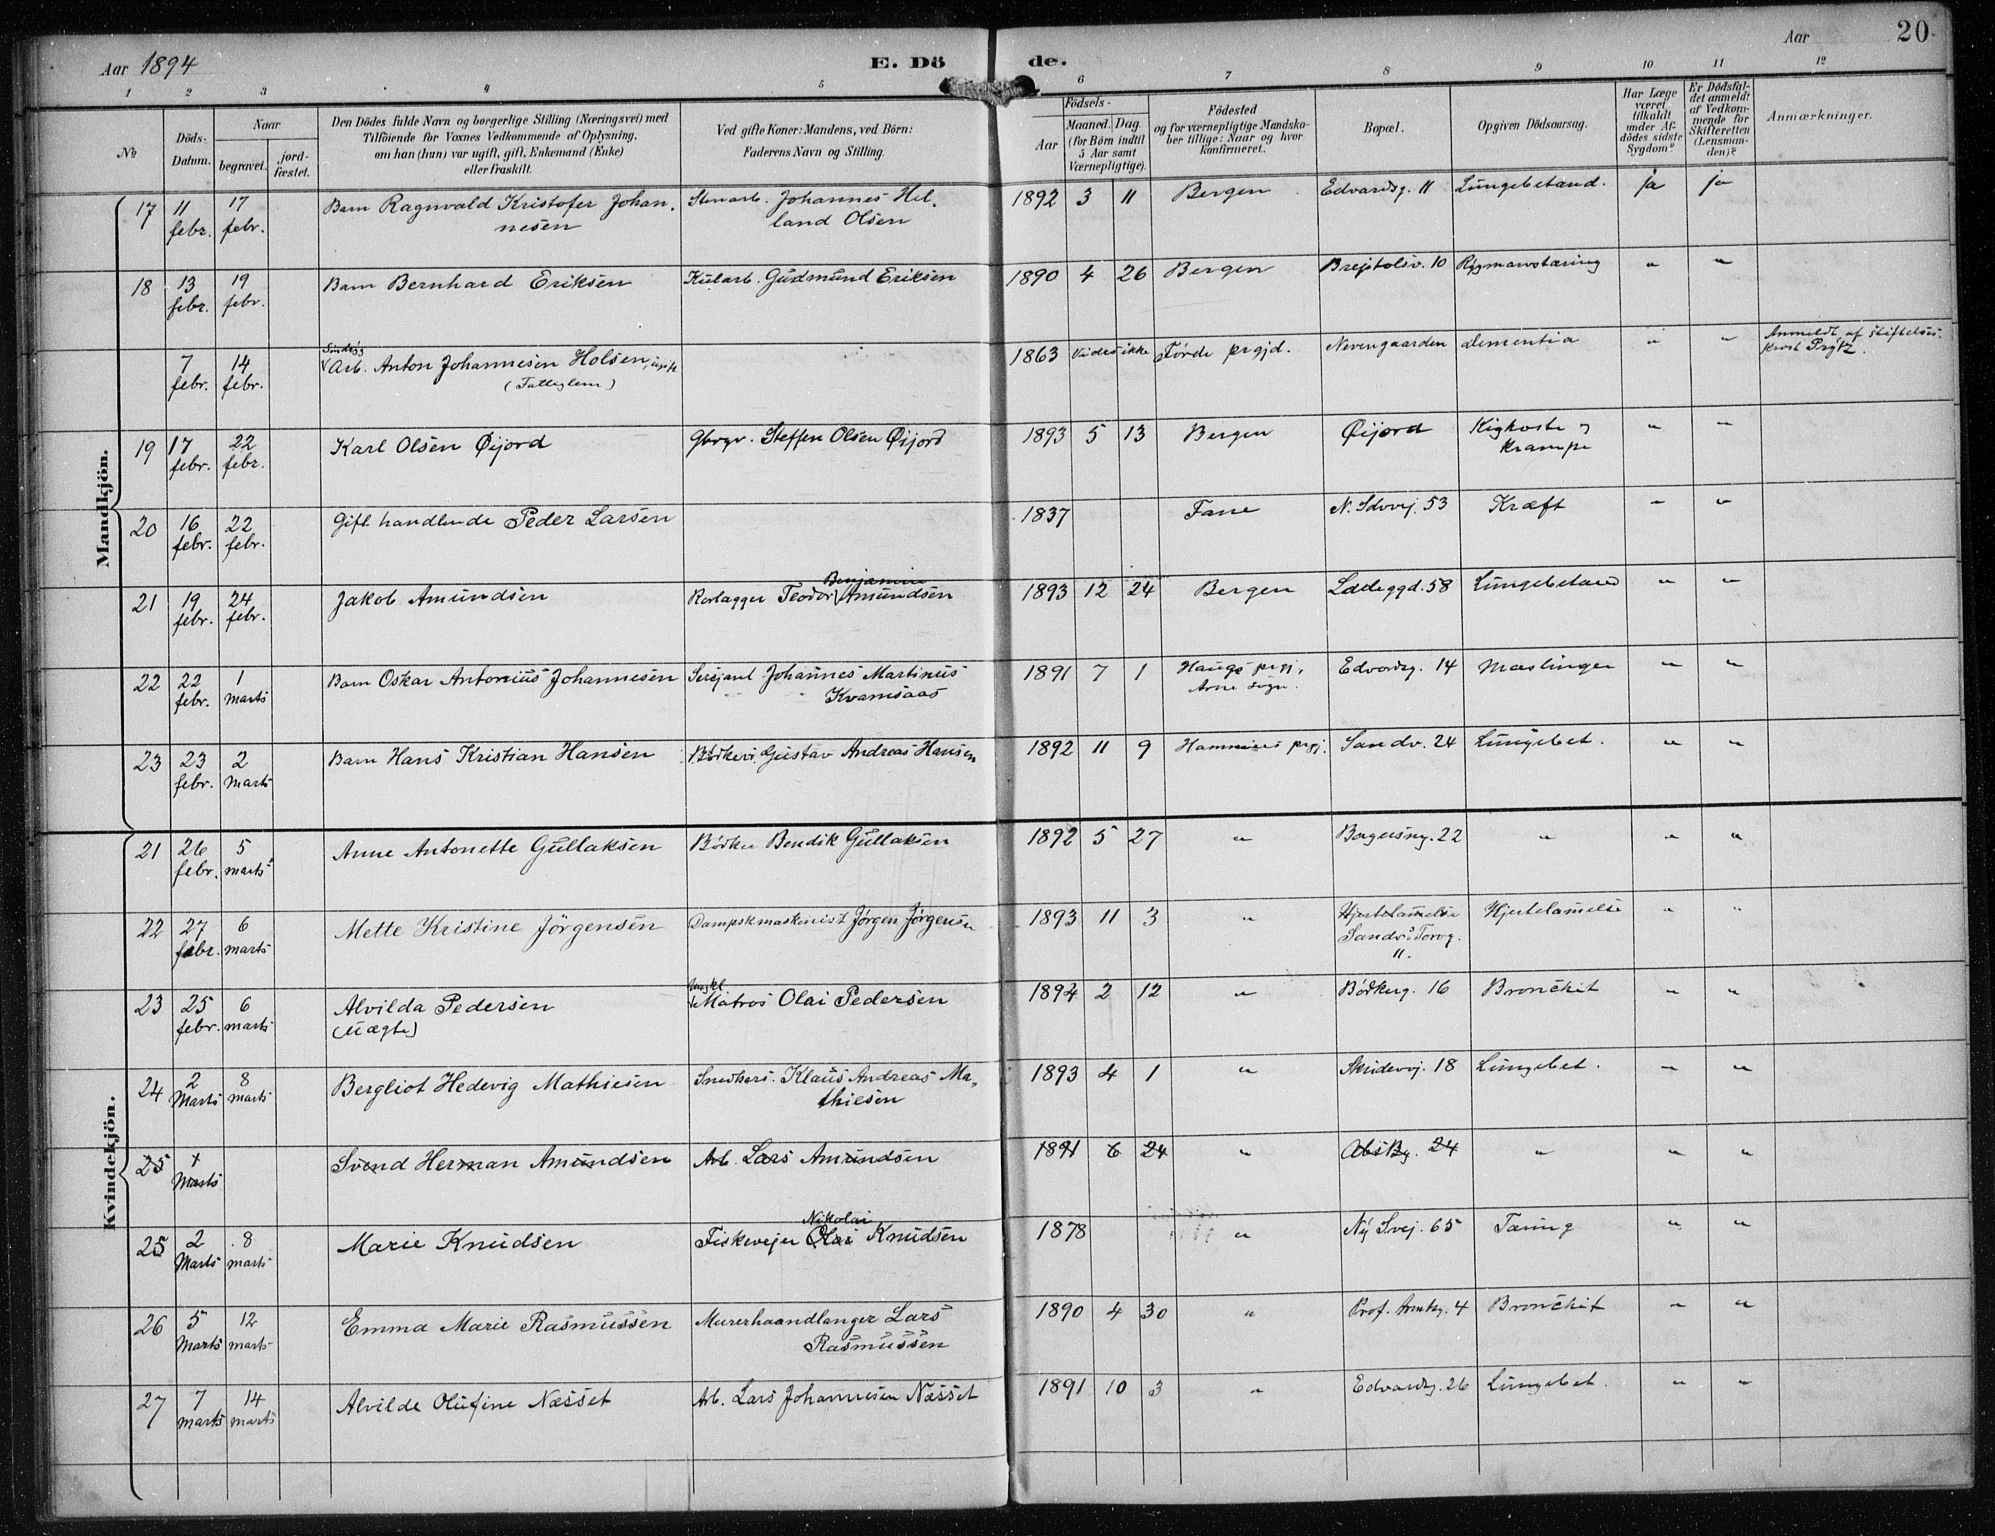 Aar 1894 E. Döde. Aar 20
1 2 3 4 5 6 7 8 9 10 11 12
№ Döds-Datum. Naar begravet. jord-fæstet.
Den Dödes fulde Navn og borgerlige Stilling (Næringsvei) med
Tilföiende for Voxnes Vedkommende af Oplysning,
om han (hun) var ugift, gift, Enkemand (Enke)
eller fraskilt.
Ved gifte Koner: Mandens, ved Börn:
Faderens Navn og Stilling.
Födsels-
Aar Maaned. Dag.
(for Börn indtil
5 Aar samt
Værnepligtige).
Födested
og for værnepligtige Mandska-
ber tillige: Naar og hvor
konfirmeret.
Bopæl.
Opgiven Dödsaarsag.
Har Læge
været
tilkaldt
under Af-
dödes sidste
Sygdom?
Er Dödsfal-
det anmeldt
af Vedkom-
mende for
Skifteretten
(Lensman-
den)?
Anmærkninger.
Mandkjön.
17 11 febr. 17 febr. Barn Ragnvald Kristofer Johan- Stenarb. Johannes Hel- 1892 3 11 Bergen Edvardsg. 11 Lungebetænd. ja ja
nesen land Olsen
18 13 febr. 19 febr. Barn Bernhard Eriksen Kularb. Gudmund Eriksen 1890 4 26 Bergen 10 Rygmarvstæring " "
7 febr. 14 febr. Arb. Anton Johannesen Holsen, ugift 1863 vides ikke Førde prgjd. Nevengaarden dementia " " Anmeldt af stiftelses-
(Fattiglem)
19 17 febr. 22 febr. Karl Olsen Øijord Gbrgr. Steffen Olsen Øijord 1893 5 13 Bergen Øijord Kighoste og " "
krampe
20 16 febr. 22 febr. Gift handlende Peder Larsen 1837 Fane 53 Kræft " "
Benjamin
21 19 febr. 24 febr. Jakob Amundsen Rorlægger Teodor Amundsen 1893 12 24 Bergen Ladeggd. 58 Lungebetænd " "
22 22 febr. 1 marts Barn Oskar Antonius Johannesen Sersjant Johannes Martinus 1891 7 1 Haugs prgj. Edvardsg. 14 Mæslinger " "
Kvamsaas Arne sogn.
23 23 febr. 2 marts Barn Hans Kristian Hansen Bødkers. Gustav Andreas Hansen 1892 11 9 Hammers prgj. Sandv. 24 Lungebet. " "
Kvindekjön.
21 26 febr. 5 marts Anne Antonette Gullaksen Bødker Bendik Gullaksen 1892 5 27 " 22 " " "
22 27 febr. 6 marts Mette Kristine Jörgensen Dampskmaskinist Jørgen Jørgensen 1893 11 3 " Hjertelamelse Hjertelamelse " "
Sandvs Torvg.
11.
Ungkl
23 25 febr. 6 marts Alvilda Pedersen Matros Olai Pedersen 1894 2 12 " Bødkerg. 16 Bronchit " "
(uægte)
24 2 Marts 8 marts Bergliot Hedevig Mathiesen Snedkers. Klaus Andreas Ma- 1893 4 1 " Skridevj. 18 Lungebet. " "
thiesen
25 1 Marts Svend Herman Amundsen Arb. Lars Amundsen 1891 6 24 " 24 " " "
Nikolai
25 2 Marts 8 marts Marie Knudsen Fiskevejer Olai Knudsen 1878 " Ny Svej. 65 Tæring " "
26 5 Marts 12 marts Emma Marie Rasmussen Murerhaandlanger Lars 1890 4 30 " 4 Bronchit " "
Rasmussen
27 7 marts 14 marts Alvilde Olufine Næsset Arb. Lars Johannesen Næsset 1891 10 3 " Edvardsg. 26 Lungebet. " "